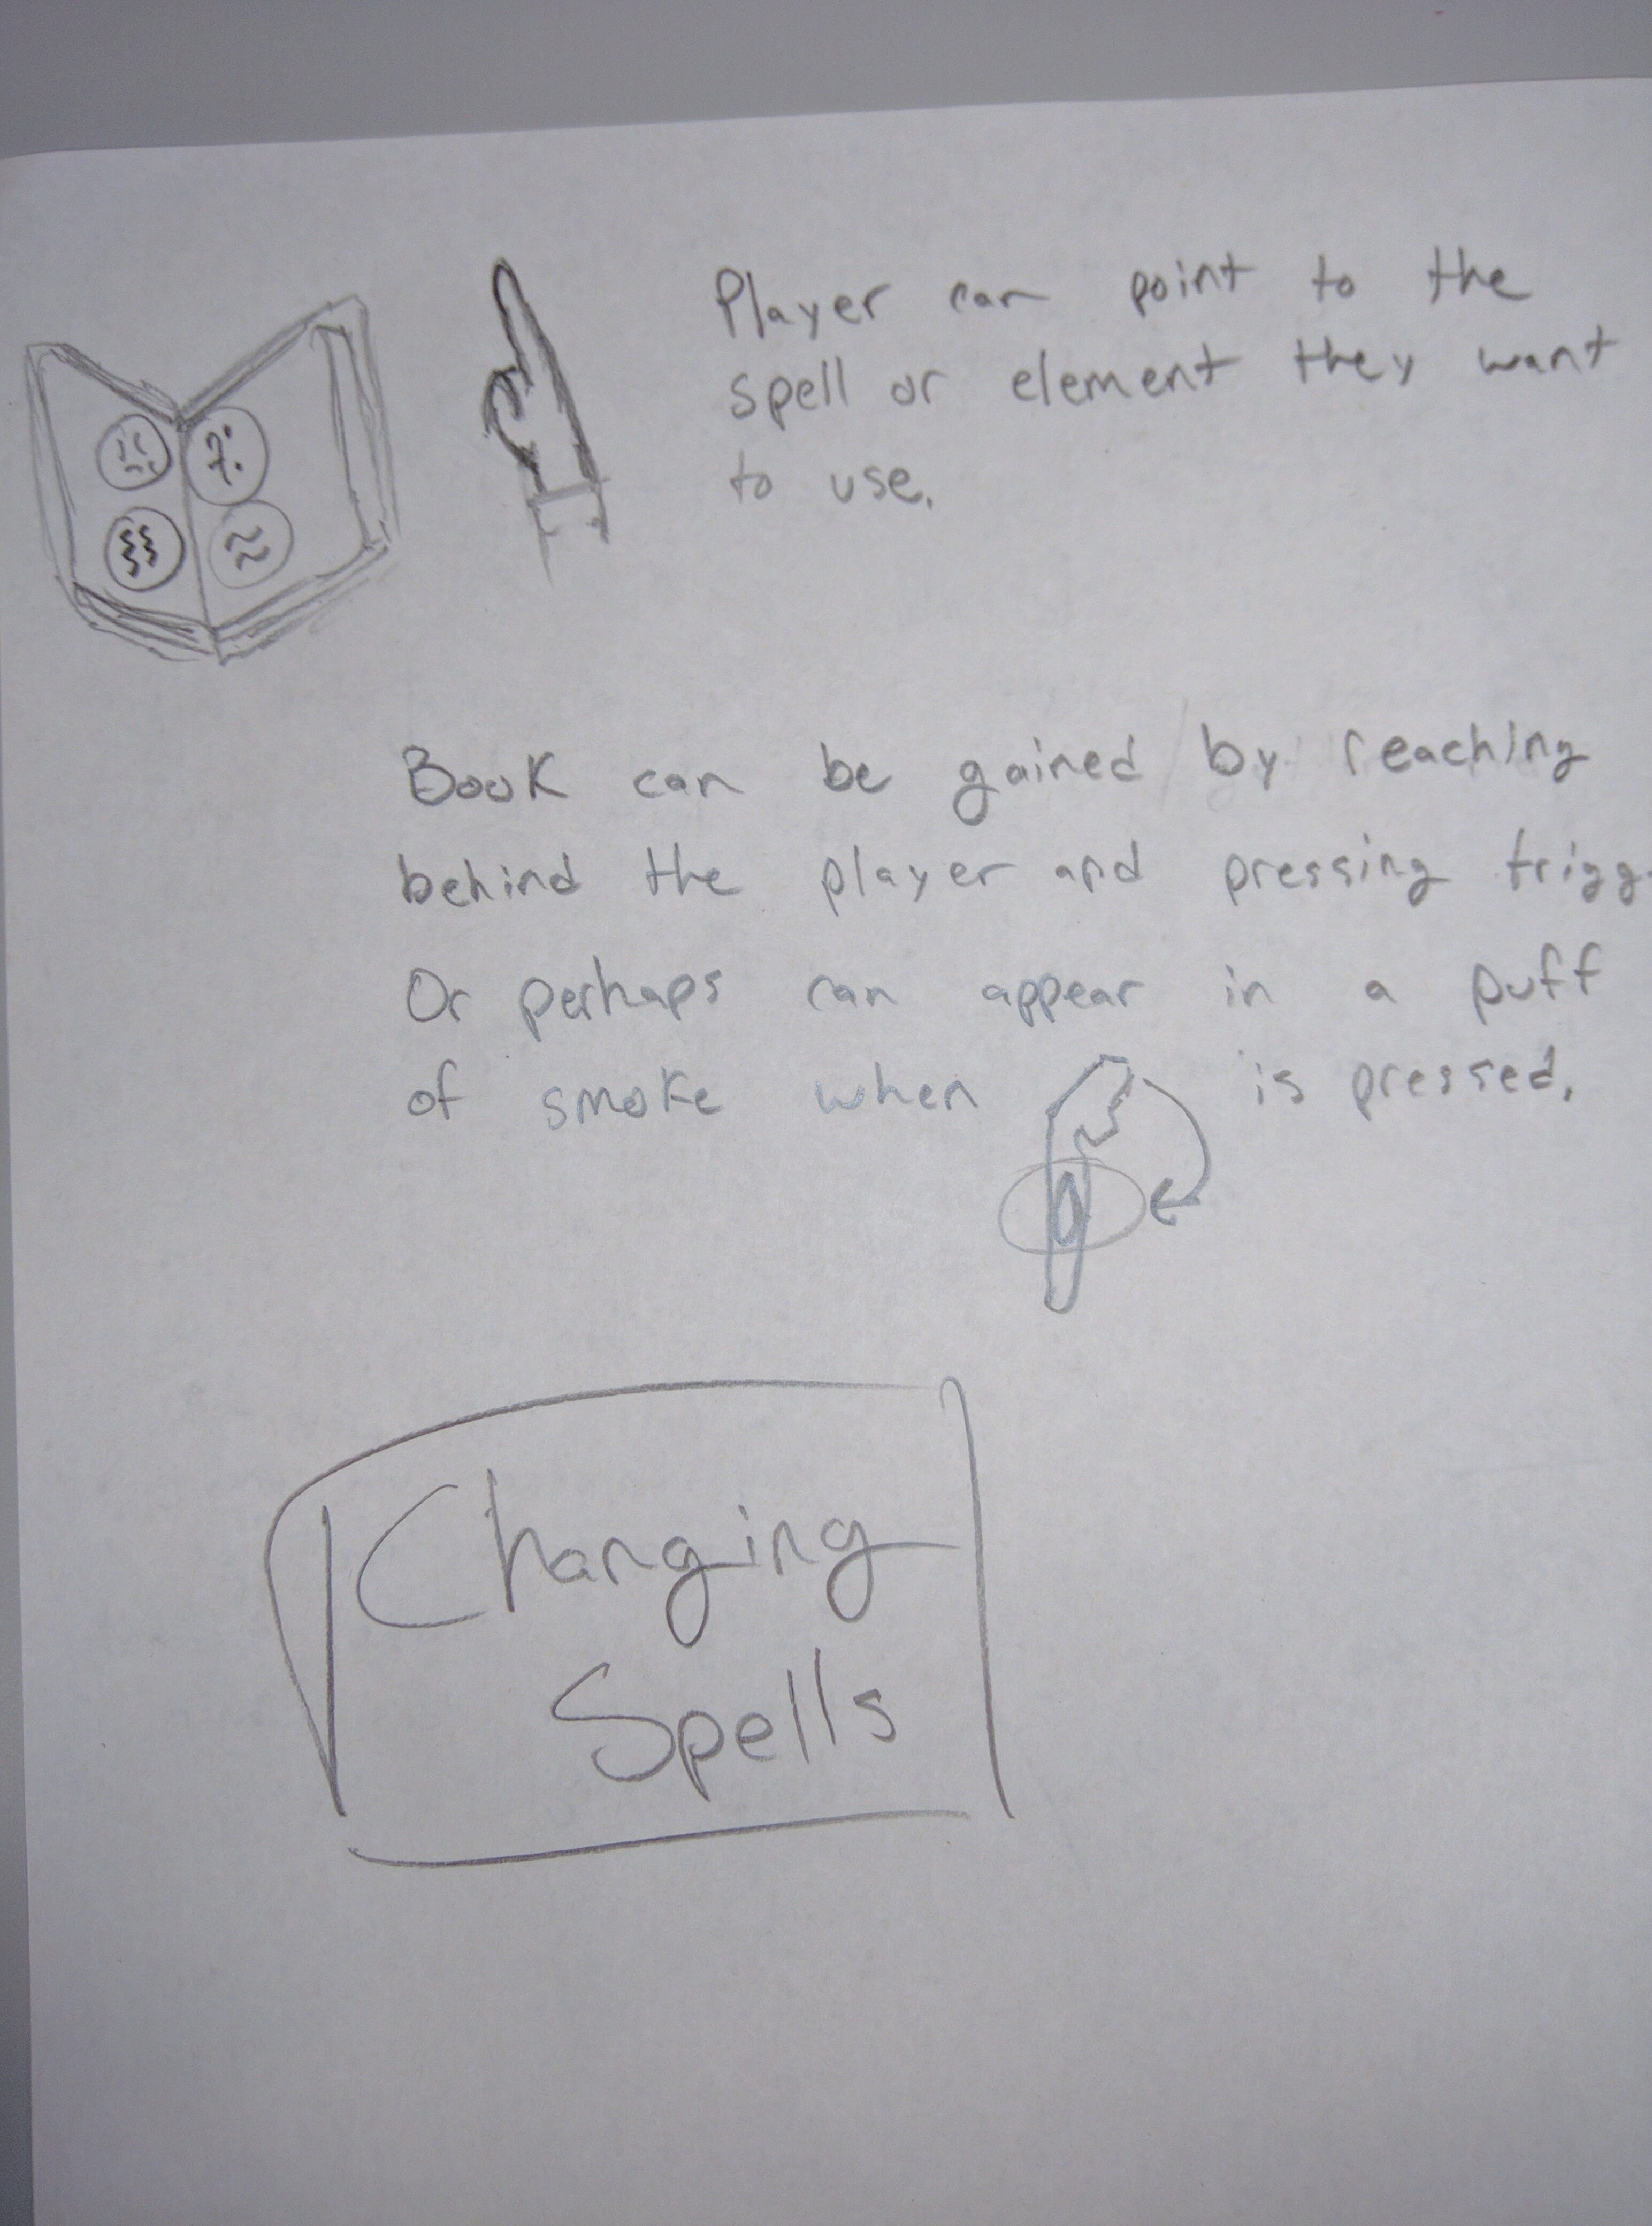 Player can point to the
spell or element they want
to use.
Book can be gained by reaching
behind the player and pressing trigg
Or perhaps can appear in a puff
of smoke when is pressed.
Changing
Spells